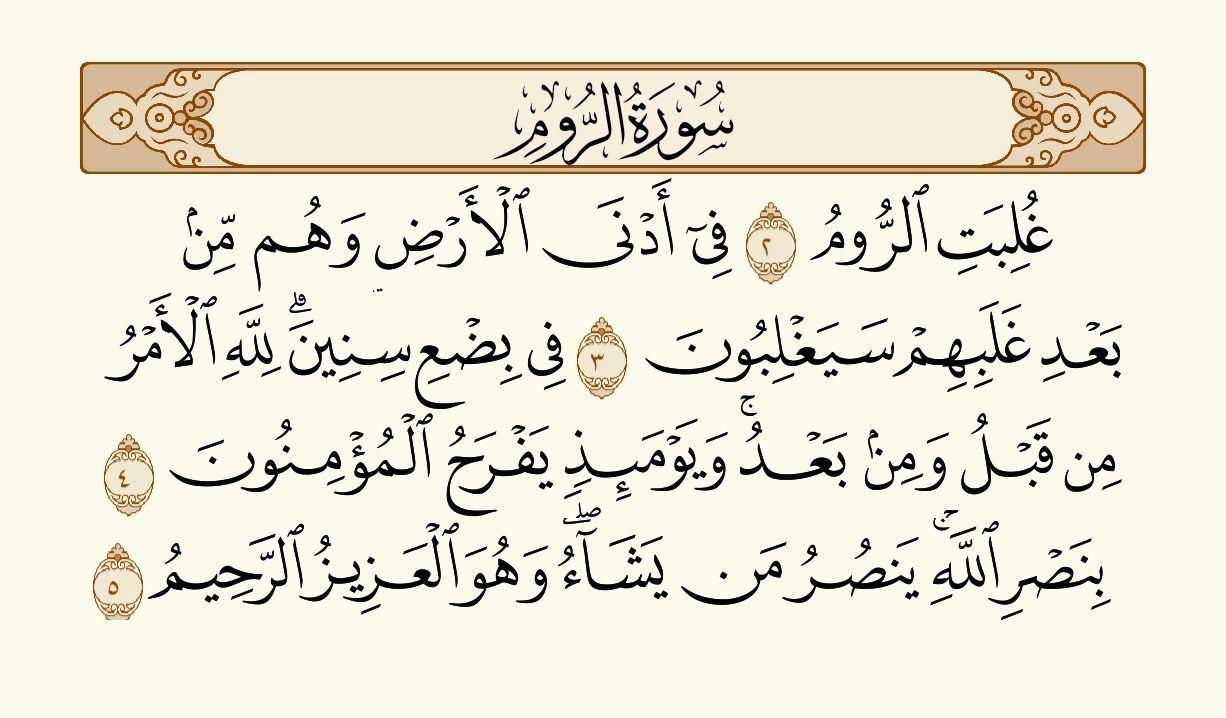 سُورَةُ الرُّومِ
غُلِبَتِ ٱلرُّومُ ٢ فِىٓ أَدْنَى ٱلْأَرْضِ وَهُم مِّنۢ
بَعْدِ غَلَبِهِمْ سَيَغْلِبُونَ ٣ فِى بِضْعِ سِنِينَ ۗ لِلَّهِ ٱلْأَمْرُ
مِن قَبْلُ وَمِنۢ بَعْدُ ۚ وَيَوْمَئِذٍ يَفْرَحُ ٱلْمُؤْمِنُونَ ٤
بِنَصْرِ ٱللَّهِ ۚ يَنصُرُ مَن يَشَآءُ ۖ وَهُوَ ٱلْعَزِيزُ ٱلرَّحِيمُ ٥